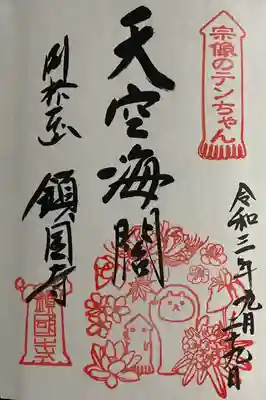 宗像のテンちゃん
令和三年九月二十九日
天空海闊
鎮国寺
鎮國寺